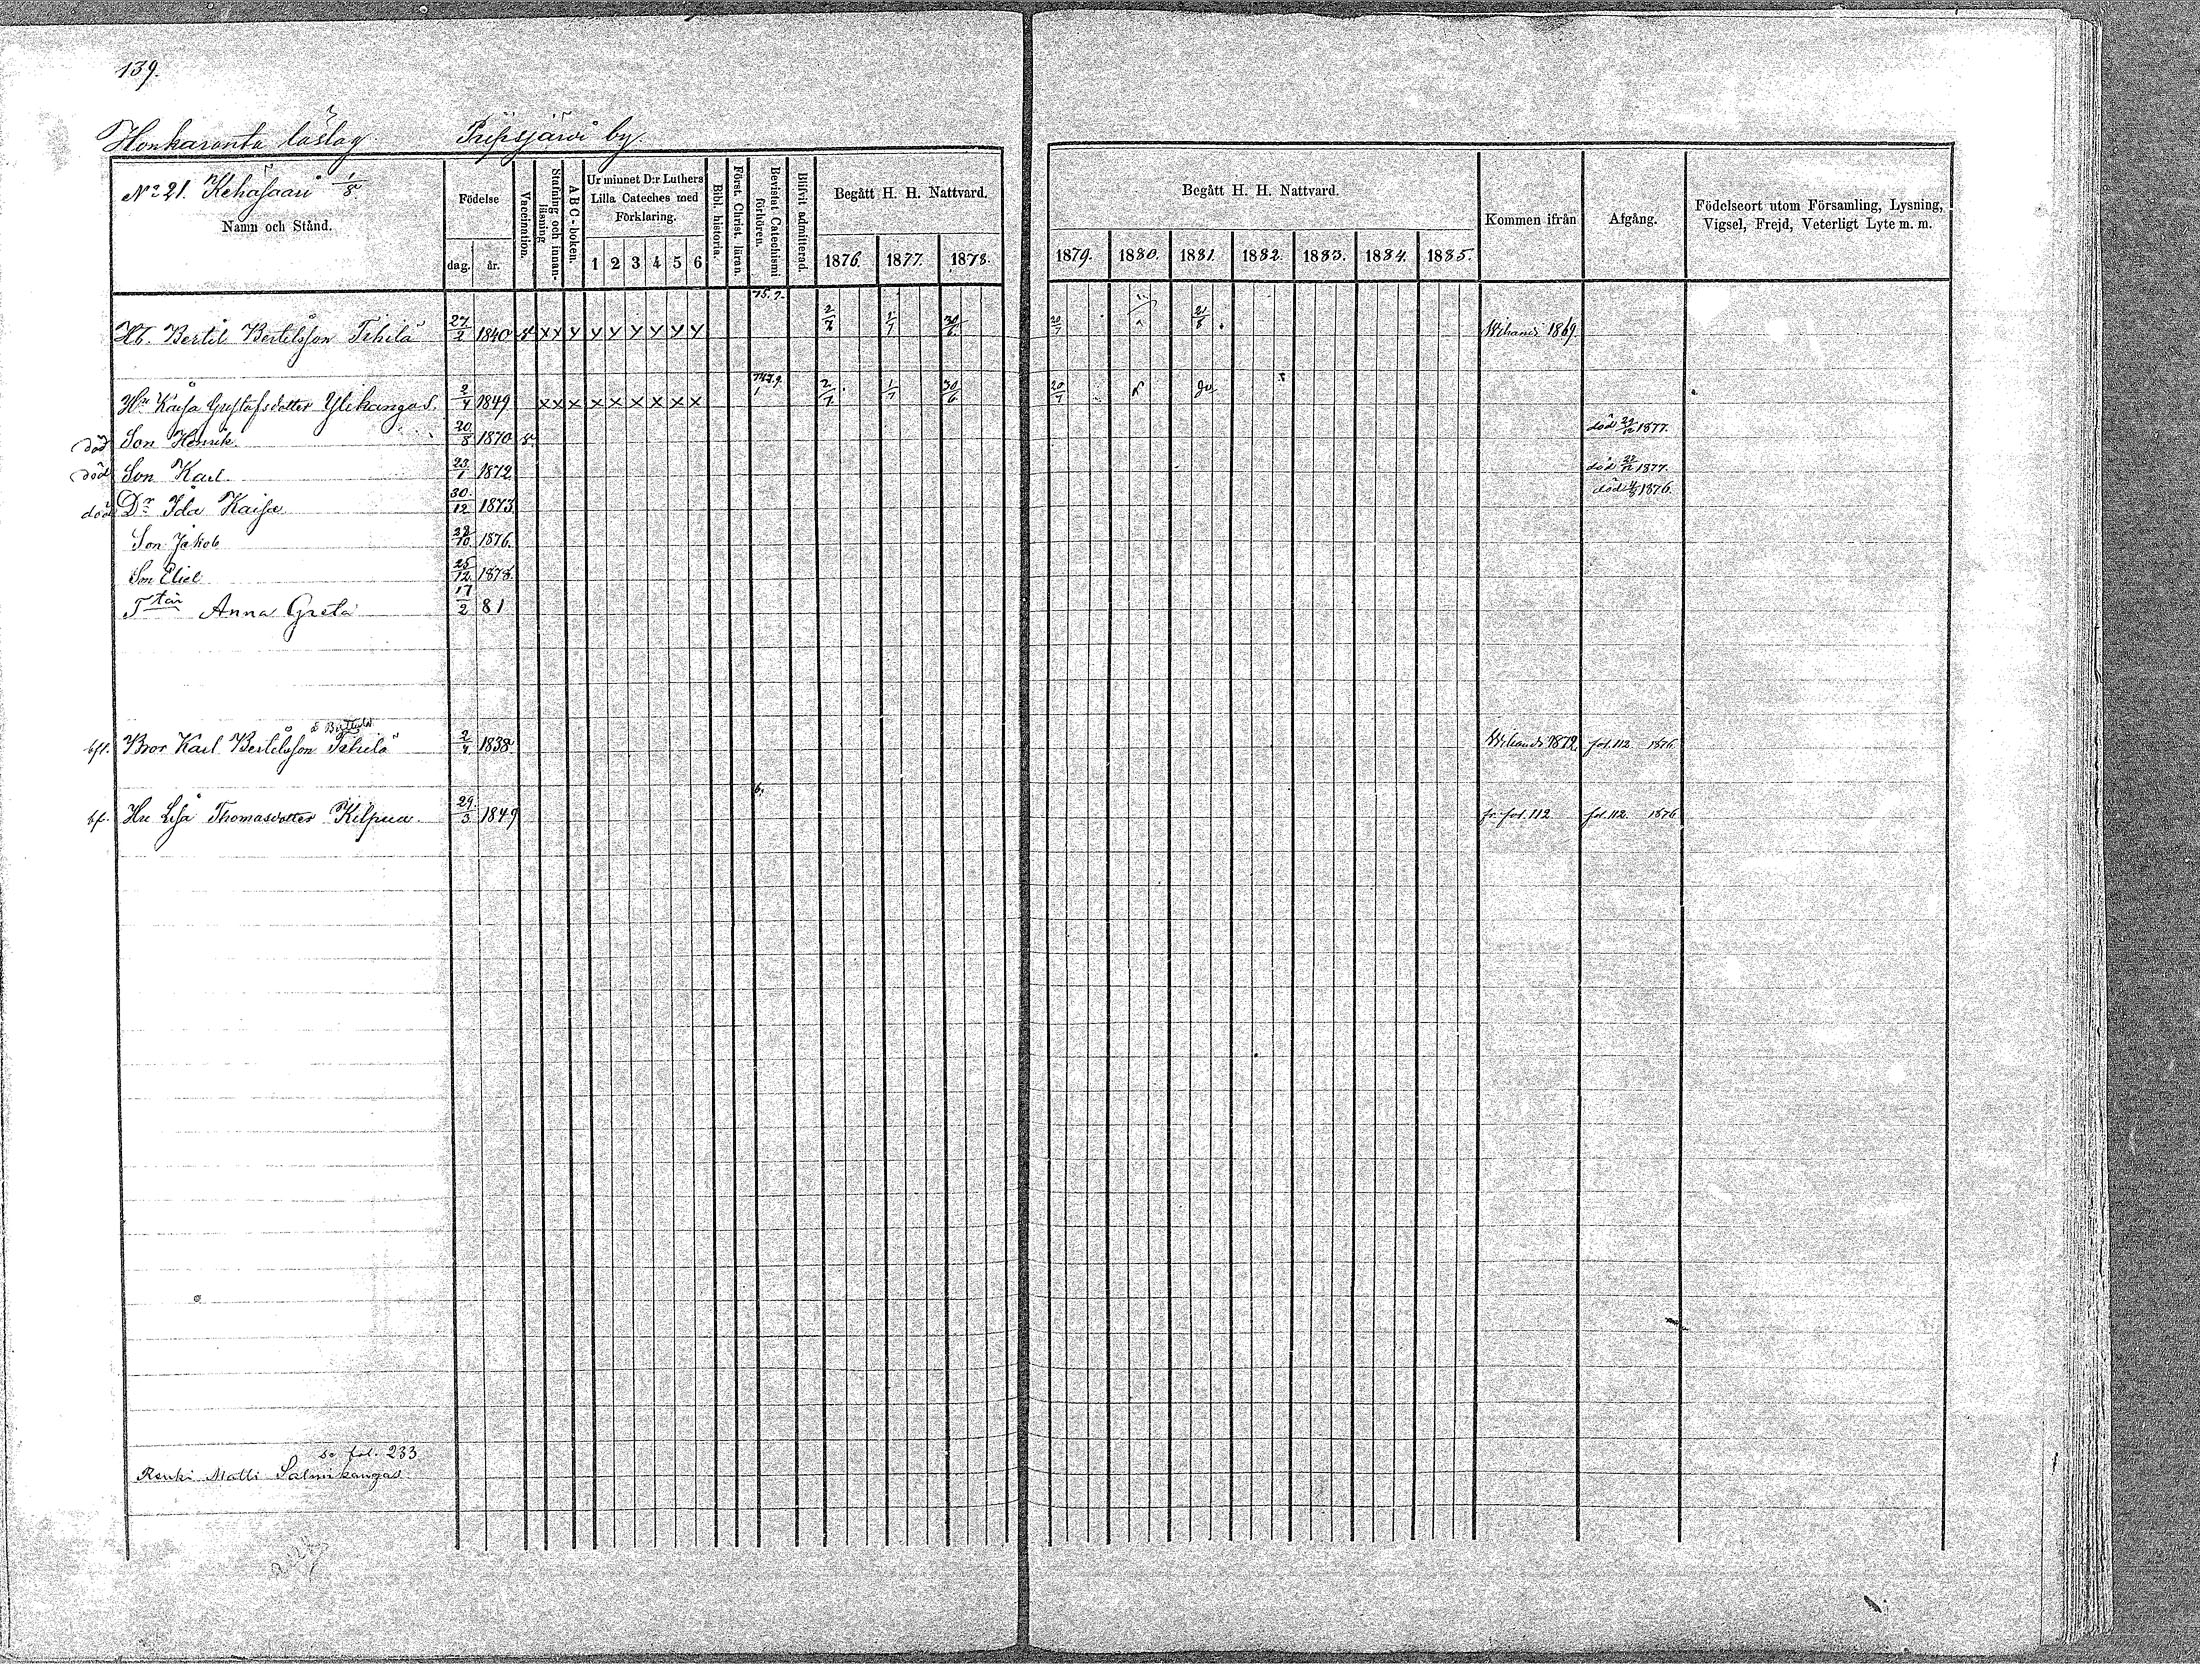 139.
Honkaranta läslag. Piipsjärvi by.
No 21. Kehäsaari 1/8.
Namn och Stånd.
Födelse
dag. år.
Vaccination.
Stafning och innanläsning
ABC-boken.
Ur minnet D:r Luthers Lilla Cateches med Förklaring.
1 2 3 4 5 6
Bibl. historia.
Först. Christ. läran.
Bevistat Catechismi förhören.
Blifvit admitterad.
Begått H. H. Nattvard.
1876. 1877. 1878.
Begått H. H. Nattvard.
1879. 1880. 1881. 1882. 1883. 1884. 1885.
Kommen ifrån
Afgång.
Födelseort utom Församling, Lysning, Vigsel, Frejd, Veterligt Lyte m. m.
Hb. Bertil Bertilsson Tihilä 27/2 1840 x x y y y y y y y 75. 7. 1/7 30/6 20/7 21/8 Wihandi 1869.
Hu Kaisa Gustafsdotter Ylikangas. 2/4 1849 x x x x x x x x x 2/7 1/7 30/6 20/7
död Son Henrik 20/8 1870 död 1877.
död Son Karl 23/1 1872 död 1877.
död Dr Ida Kaisa 30/12 1873 död 1876.
Son Jakob 28/10 1876.
Son Eliel 25/12 1878.
Ttär Anna Greta 17/2 81
bfl. Bror Karl Bertilsson Tihilä 2/4 1838 Wihandi 1872 fol. 112 1876
bf. Hu Lisa Thomasdotter Kilpua. 29/3 1849 6. fr. fol. 112 fol. 112 1876
se fol. 233
Renki Matti Salmikangas